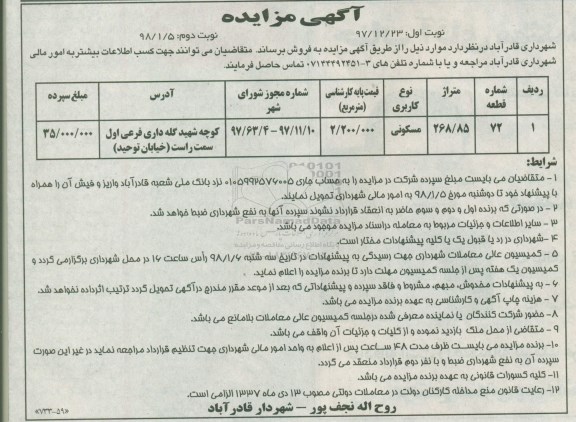 آگهی مزایده
نوبت اول: ۹۷/۱۲/۲۳
نوبت دوم: ۹۸/۱/۵
شهرداری قادرآباد درنظر دارد موارد ذیل را از طریق آگهی مزایده به فروش برساند. متقاضیان می توانند جهت کسب اطلاعات بیشتر به امور مالی
شهرداری قادرآباد مراجعه و یا با شماره تلفن های ۳-۰۷۱۴۴۴۹۲۴۵۱ تماس حاصل فرمایند.
ردیف شماره قطعه متراژ نوع کاربری قیمت پایه کارشناسی (مترمربع) شماره مجوز شورای شهر آدرس مبلغ سپرده
۱ ۷۲ ۲۶۸/۸۵ مسکونی ۲/۲۰۰/۰۰۰ ۹۷/۶۳/۴ – ۹۷/۱۱/۱۰ کوچه شهید گله داری فرعی اول سمت راست (خیابان توحید) ۳۵/۰۰۰/۰۰۰
شرایط:
۱- متقاضیان می بایست مبلغ سپرده شرکت در مزایده را به حساب جاری ۰۱۰۵۹۹۲۵۷۶۰۰۵ نزد بانک ملی شعبه قادرآباد واریز و فیش آن را همراه
با پیشنهاد خود تا دوشنبه مورخ ۹۸/۱/۵ به امور مالی شهرداری تحویل نمایند.
۲- در صورتی که برنده اول و دوم و سوم حاضر به انعقاد قرارداد نشوند سپرده آنها به نفع شهرداری ضبط خواهد شد.
۳- سایر اطلاعات و جزئیات مربوط به معامله دراسناد مزایده موجود می باشد.
۴- شهرداری در رد یا قبول یک یا کلیه پیشنهادات مختار است.
۵- کمیسیون عالی معاملات شهرداری جهت رسیدگی به پیشنهادات در تاریخ سه شنبه ۹۸/۱/۶ رأس ساعت ۱۶ در محل شهرداری برگزارمی گردد و
کمیسیون یک هفته پس از جلسه کمیسیون مهلت دارد تا برنده مزایده را اعلام نماید.
۶- به پیشنهادات مخدوش، مبهم، مشروط و فاقد سپرده و پیشنهاداتی که بعد از موعد مقرر مندرج درآگهی تحویل گردد ترتیب اثرداده نخواهد شد.
۷- هزینه چاپ آگهی و کارشناسی به عهده برنده مزایده می باشد.
۸- حضور شرکت کنندگان یا نماینده معرفی شده درجلسه کمیسیون عالی معاملات بلامانع می باشد.
۹- متقاضی از محل ملک بازدید نموده و از کلیات و جزئیات آن واقف می باشد.
۱۰- برنده مزایده می بایست ظرف مدت ۴۸ ساعت پس از اعلام به واحد امور مالی شهرداری جهت تنظیم قرارداد مراجعه نماید در غیر این صورت
سپرده آن به نفع شهرداری ضبط و با نفر دوم قرارداد منعقد می گردد.
۱۱- کلیه کسورات قانونی به عهده برنده مزایده می باشد.
۱۲- رعایت قانون منع مداخله کارکنان دولت در معاملات دولتی مصوب ۱۳ دی ماه ۱۳۳۷ الزامی است.
روح اله نجف پور – شهردار قادرآباد
«۷۳۳-۵۹»
ParsNamadData